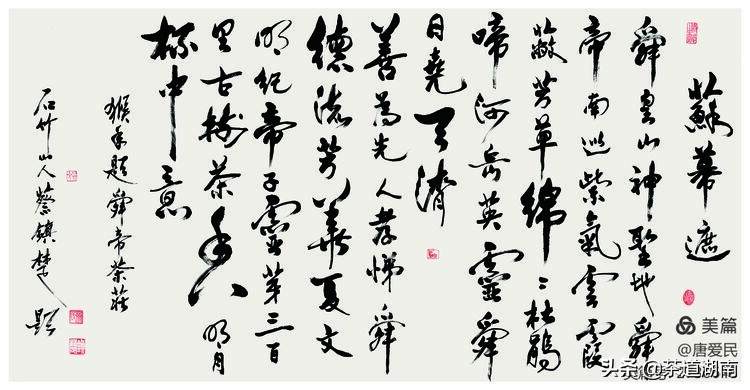 蘇幕遮
舜皇山神聖地舜
帝南巡紫氣雲霞
蔽芳草綿々杜鵑
啼河岳英靈舜
日堯天濟
善為先人孝悌舜
德流芳華夏文
明紀帝子靈芽三百
里古樹茶香明月
杯中意
猴年題舜帝茶莊
石竹山人蔡鎮楚題
美篇
@唐爱民
头条@茶道湖南